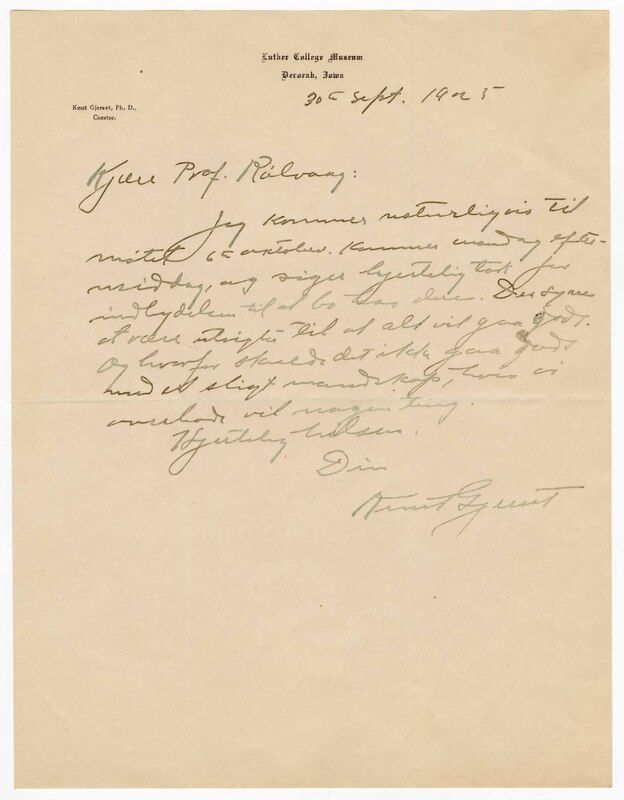 Luther College Museum
Decorah, Iowa
30te Sept. 1925
Knut Gjerset, Ph. D.,
Curator.
Kjære Prof. Rølvaag:
Jeg kommer naturligvis til
møtet 6te oktober. Kommer mandag efter-
middag, og siger hjertelig tak for
indbydelsen til at bo hos dere. Det synes
at være utsigter til at alt vil gaa godt.
Og hvorfor skulde det ikke gaa godt
med et sligt mandskap, hvis vi
overhode vil nogen ting.
Hjertelig hilsen.
Din
Knut Gjerset